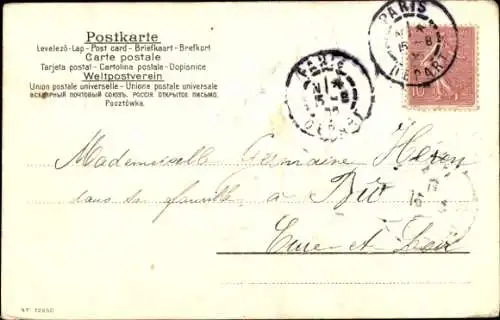 Postkarte
Levelező-Lap - Post card - Briefkaart - Brefkort
Carte postale
Tarjeta postal - Cartolina postale - Dopisnice
Weltpostverein
Union postale universelle - Unione postale universale
ВСЕМІРНЫЙ ПОЧТОВЫЙ СОЮЗЪ. РОССІЯ. ОТКРЫТОЕ ПИСЬМО.
Pocztówka.
PARIS
15
DEPART
PARIS
15
Mademoiselle Germaine
dans sa famille à
Eure et Loir